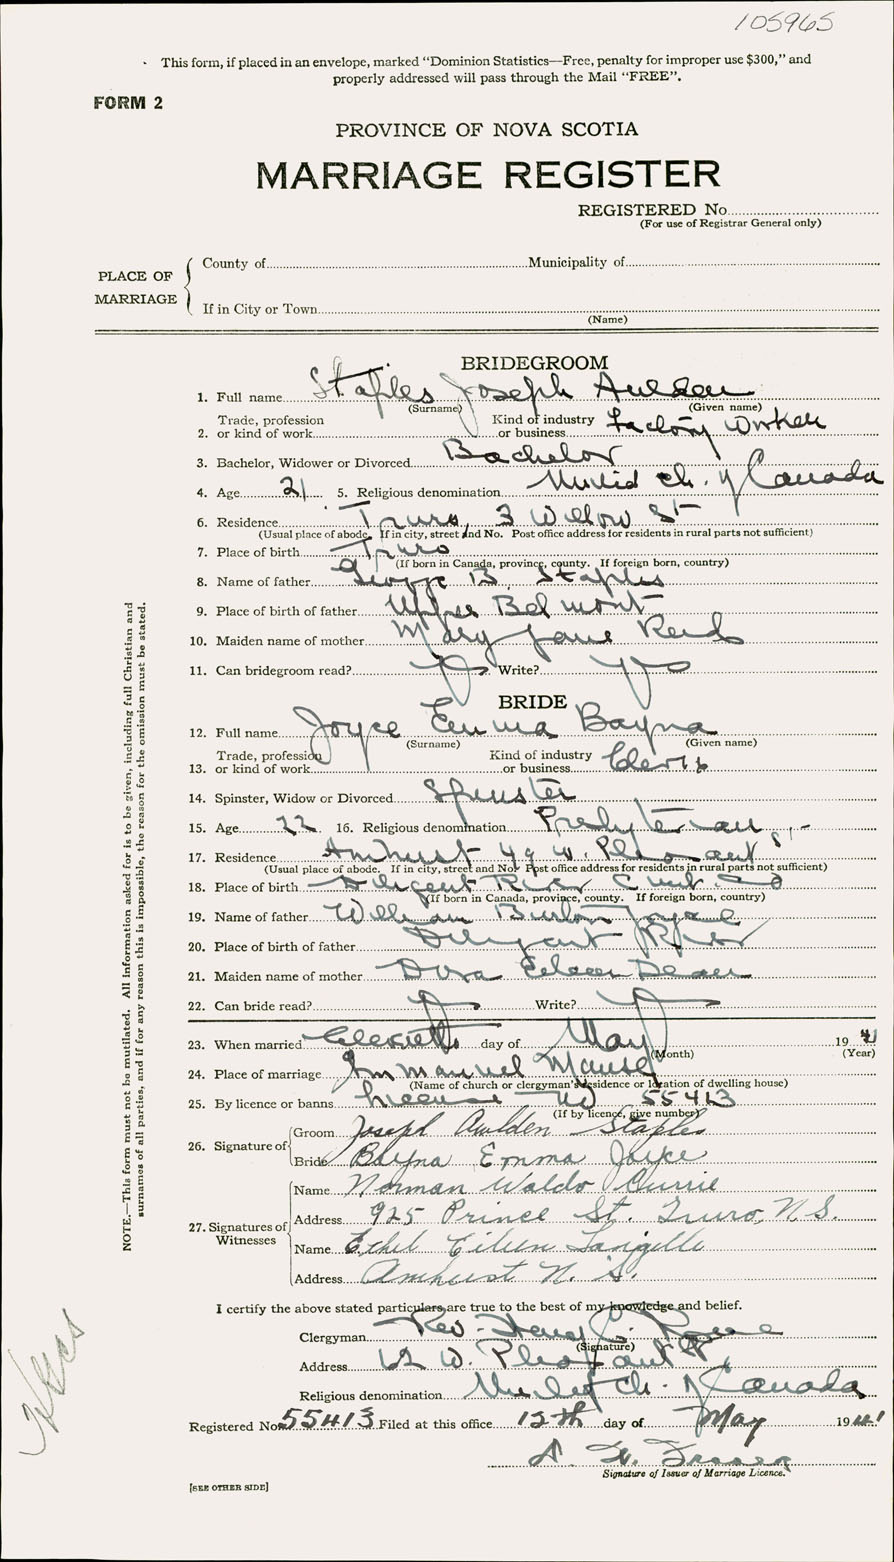 105965
This form, if placed in an envelope, marked “Dominion Statistics—Free, penalty for improper use $300,” and
properly addressed will pass through the Mail “FREE”.
FORM 2
PROVINCE OF NOVA SCOTIA
MARRIAGE REGISTER
REGISTERED No.
(For use of Registrar General only)
PLACE OF MARRIAGE
County of Municipality of
If in City or Town
(Name)
BRIDEGROOM
1. Full name Staples Joseph Aulden
(Surname) (Given name)
2. Trade, profession or kind of work Kind of industry or business Factory Worker
3. Bachelor, Widower or Divorced Bachelor
4. Age 21 5. Religious denomination United Ch. of Canada
6. Residence Truro, 3 Willow St
(Usual place of abode. If in city, street and No. Post office address for residents in rural parts not sufficient)
7. Place of birth Truro
(If born in Canada, province, county. If foreign born, country)
8. Name of father George B. Staples
9. Place of birth of father Upper Belmont
10. Maiden name of mother Mary Jane
11. Can bridegroom read? yes Write? yes
BRIDE
12. Full name Joyce Emma Bayna
(Surname) (Given name)
13. Trade, profession or kind of work Kind of industry or business Clerk
14. Spinster, Widow or Divorced Spinster
15. Age 22 16. Religious denomination Presbyterian
17. Residence Amherst 49 W. Pleasant St
(Usual place of abode. If in city, street and No. Post office address for residents in rural parts not sufficient)
18. Place of birth Diligent River
(If born in Canada, province, county. If foreign born, country)
19. Name of father William Burton Joyce
20. Place of birth of father Diligent River
21. Maiden name of mother Dora Eileen
22. Can bride read? yes Write? yes
23. When married day of May 1941
(Month) (Year)
24. Place of marriage Immanuel Manse
(Name of church or clergyman's residence or location of dwelling house)
25. By licence or banns licence No 55413
(If by licence, give number)
26. Signature of
Groom Joseph Aulden Staples
Bride Bayna Emma Joyce
27. Signatures of Witnesses
Name Norman Waldo Currie
Address 925 Prince St. Truro, N.S.
Name Ethel Eileen Langille
Address Amherst N.S.
I certify the above stated particulars are true to the best of my knowledge and belief.
Clergyman Rev.
(Signature)
Address 62 W. Pleasant St
Religious denomination United Ch. of Canada
Registered No. 55413 Filed at this office 12th day of May 1941
Fraser
Signature of Issuer of Marriage Licence.
[SEE OTHER SIDE]
NOTE.—This form must not be mutilated. All information asked for is to be given, including full Christian and
surnames of all parties, and if for any reason this is impossible, the reason for the omission must be stated.